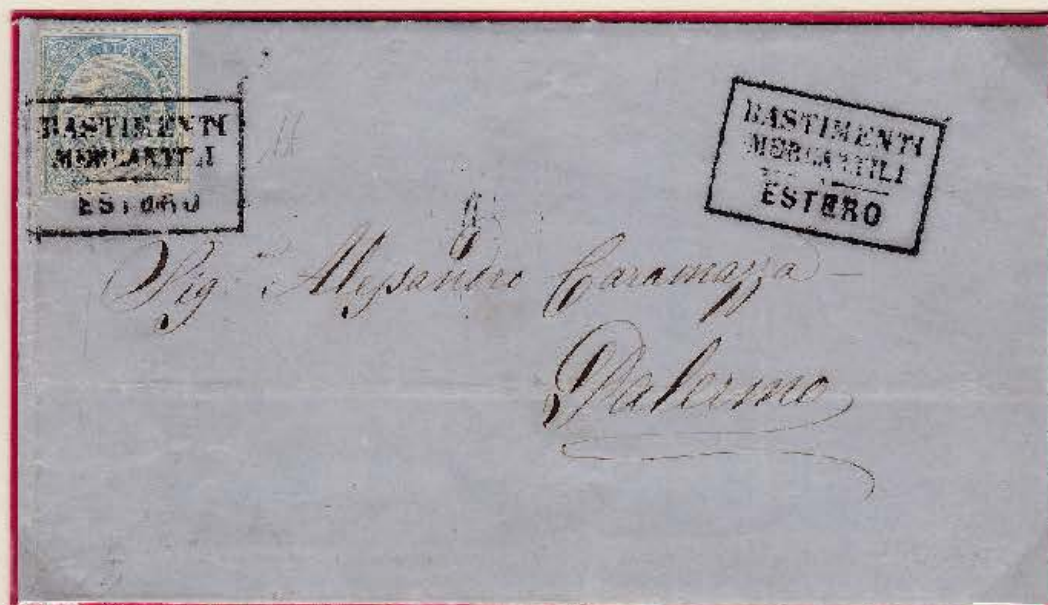 BASTIMENTI
MERCANTILI
ESTERO
BASTIMENTI
MERCANTILI
ESTERO
Sig.r Alessandro Caramazza
Palermo